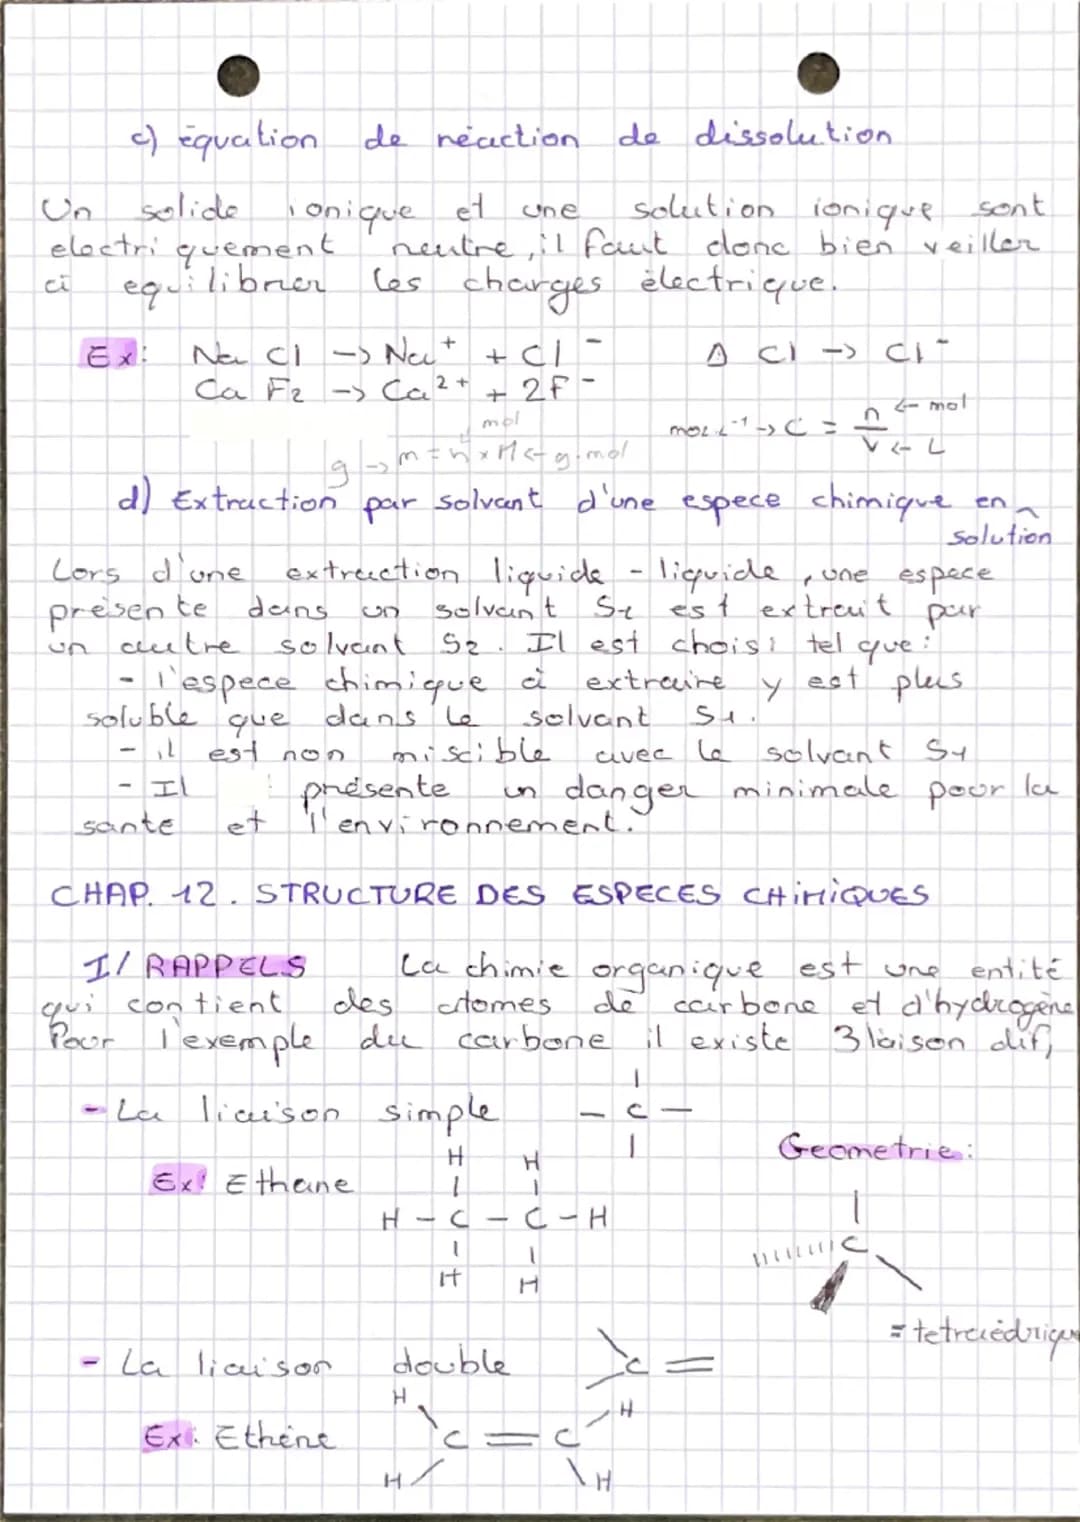 c) équation de réaction de dissolution
Un solide ionique et une solution ionique sont
electriquement neutre, il faut donc bien veiller
à equilibrer les charges électrique.
Ex: Na Cl -> Na⁺ + Cl⁻ ⚠ Cl -> Cl⁻
Ca F₂ -> Ca²⁺ + 2F⁻
mol
mol.L⁻¹ -> C = n/V <- mol <- L
g -> m = n x M <- g.mol
d) Extraction par solvant d'une espece chimique en
solution
Lors d'une extraction liquide - liquide, une espece
présente dans un solvant S₁ est extrait par
un autre solvant S₂. Il est choisi tel que:
- l'espece chimique à extraire y est plus
soluble que dans le solvant S₁.
- il est non miscible avec le solvant S₁
- Il présente un danger minimale pour la
sante et l'environnement.
CHAP. 12. STRUCTURE DES ESPECES CHIMIQUES
I/ RAPPELS La chimie organique est une entité
qui contient des atomes de carbone et d'hydrogène
Pour l'exemple du carbone il existe 3 laison dif,
- La liaison simple - C -
Geometrie:
Ex: Ethane
H H
H - C - C - H
H H
C
= tetraédrique
- La liaison double C =
H H
Ex: Ethène C = C
H H